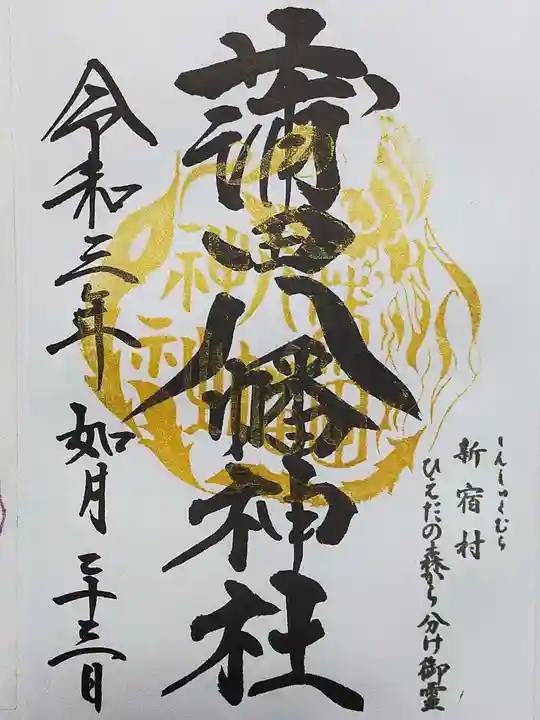 しんしゅくむら
新宿村
ひえだの森から分け御霊
蒲田八幡神社
令和三年 如月 二十三日